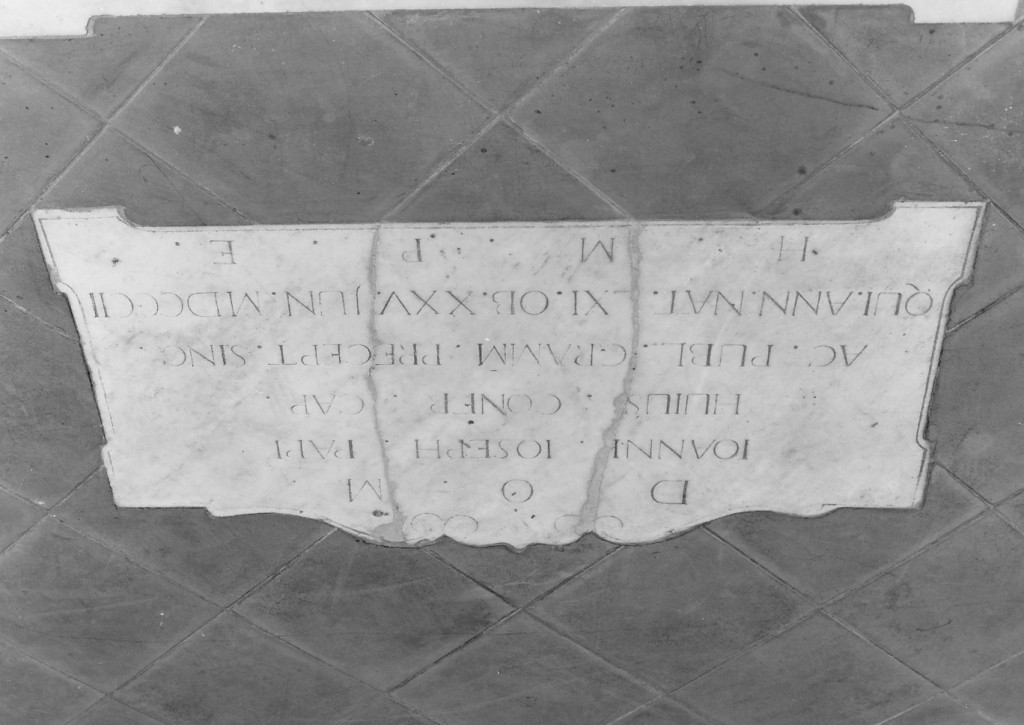 D . O . M
IOANNI . IOSEPH . PAPI
HUIUS . CONFR . CAP .
AC . PUBL . GRAMM . PRECEPT . SING .
QUI . ANN . NAT . XI . OB . XXV . JUN . MDCCCII
H . M . P . E